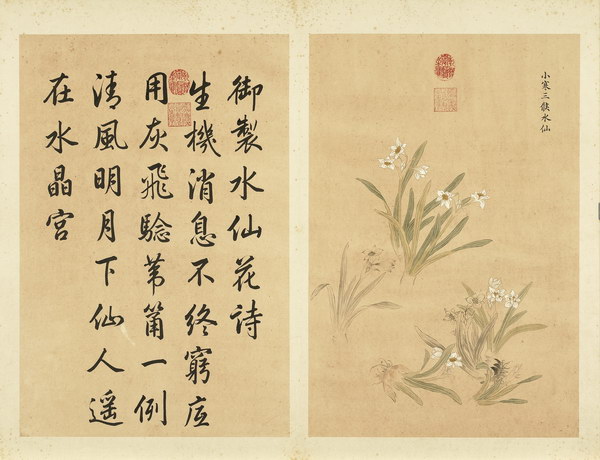 小寒三候水仙
御製水仙花詩
生機消息不終窮底
用灰飛驗葦筩一例
清風明月下仙人遥
在水晶宮